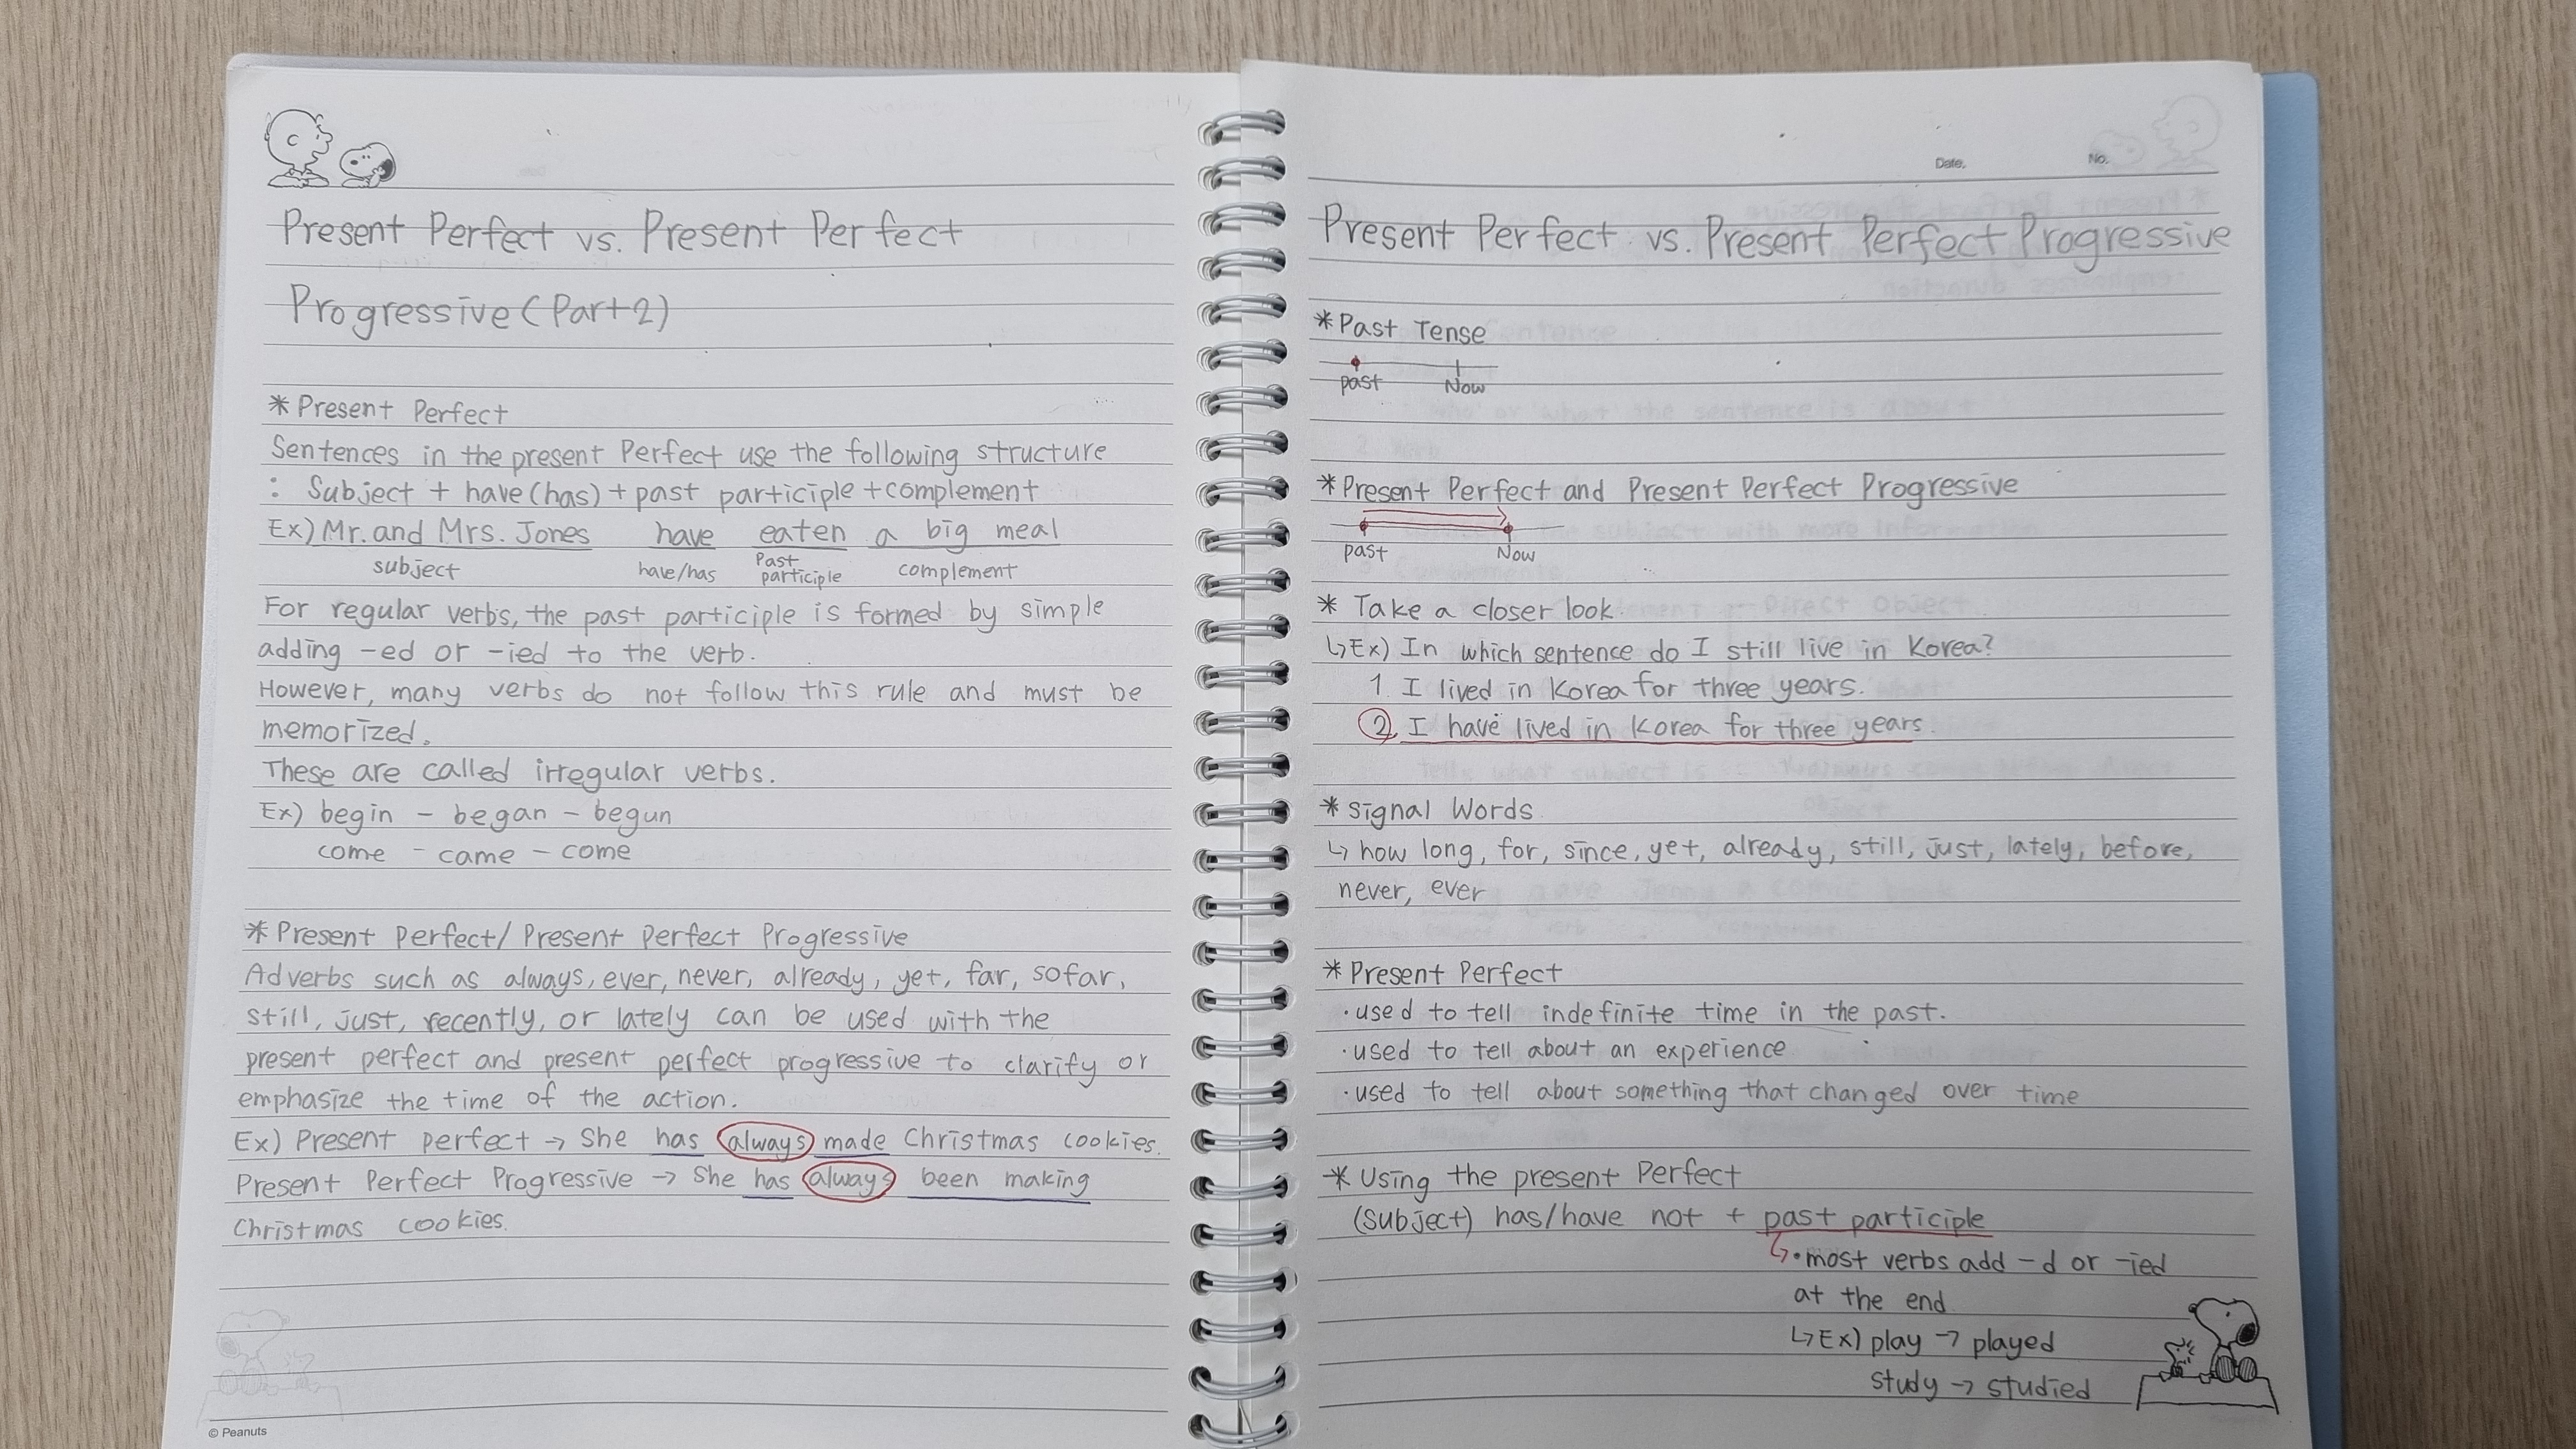 Present Perfect vs. Present Perfect
Progressive (Part 2)
* Present Perfect
Sentences in the present Perfect use the following structure
: Subject + have(has) + past participle + complement
Ex) Mr. and Mrs. Jones have eaten a big meal
subject have/has Past participle complement
For regular verbs, the past participle is formed by simple
adding -ed or -ied to the verb.
However, many verbs do not follow this rule and must be
memorized.
These are called irregular verbs.
Ex) begin - began - begun
come - came - come
* Present Perfect/ Present Perfect Progressive
Adverbs such as always, ever, never, already, yet, far, sofar,
still, just, recently, or lately can be used with the
present perfect and present perfect progressive to clarify or
emphasize the time of the action.
Ex) Present perfect → She has always made Christmas cookies.
Present Perfect Progressive → She has always been making
Christmas cookies.
© Peanuts
Date. No.
Present Perfect vs. Present Perfect Progressive
* Past Tense
past Now
* Present Perfect and Present Perfect Progressive
past Now
* Take a closer look.
↳Ex) In which sentence do I still live in Korea?
1. I lived in Korea for three years.
2. I have lived in Korea for three years.
* Signal Words
↳ how long, for, since, yet, already, still, just, lately, before,
never, ever
* Present Perfect
· used to tell indefinite time in the past.
· used to tell about an experience
· used to tell about something that changed over time
* Using the present Perfect
(Subject) has/have not + past participle
↳ · most verbs add -d or -ied
at the end
↳Ex) play → played
study → studied